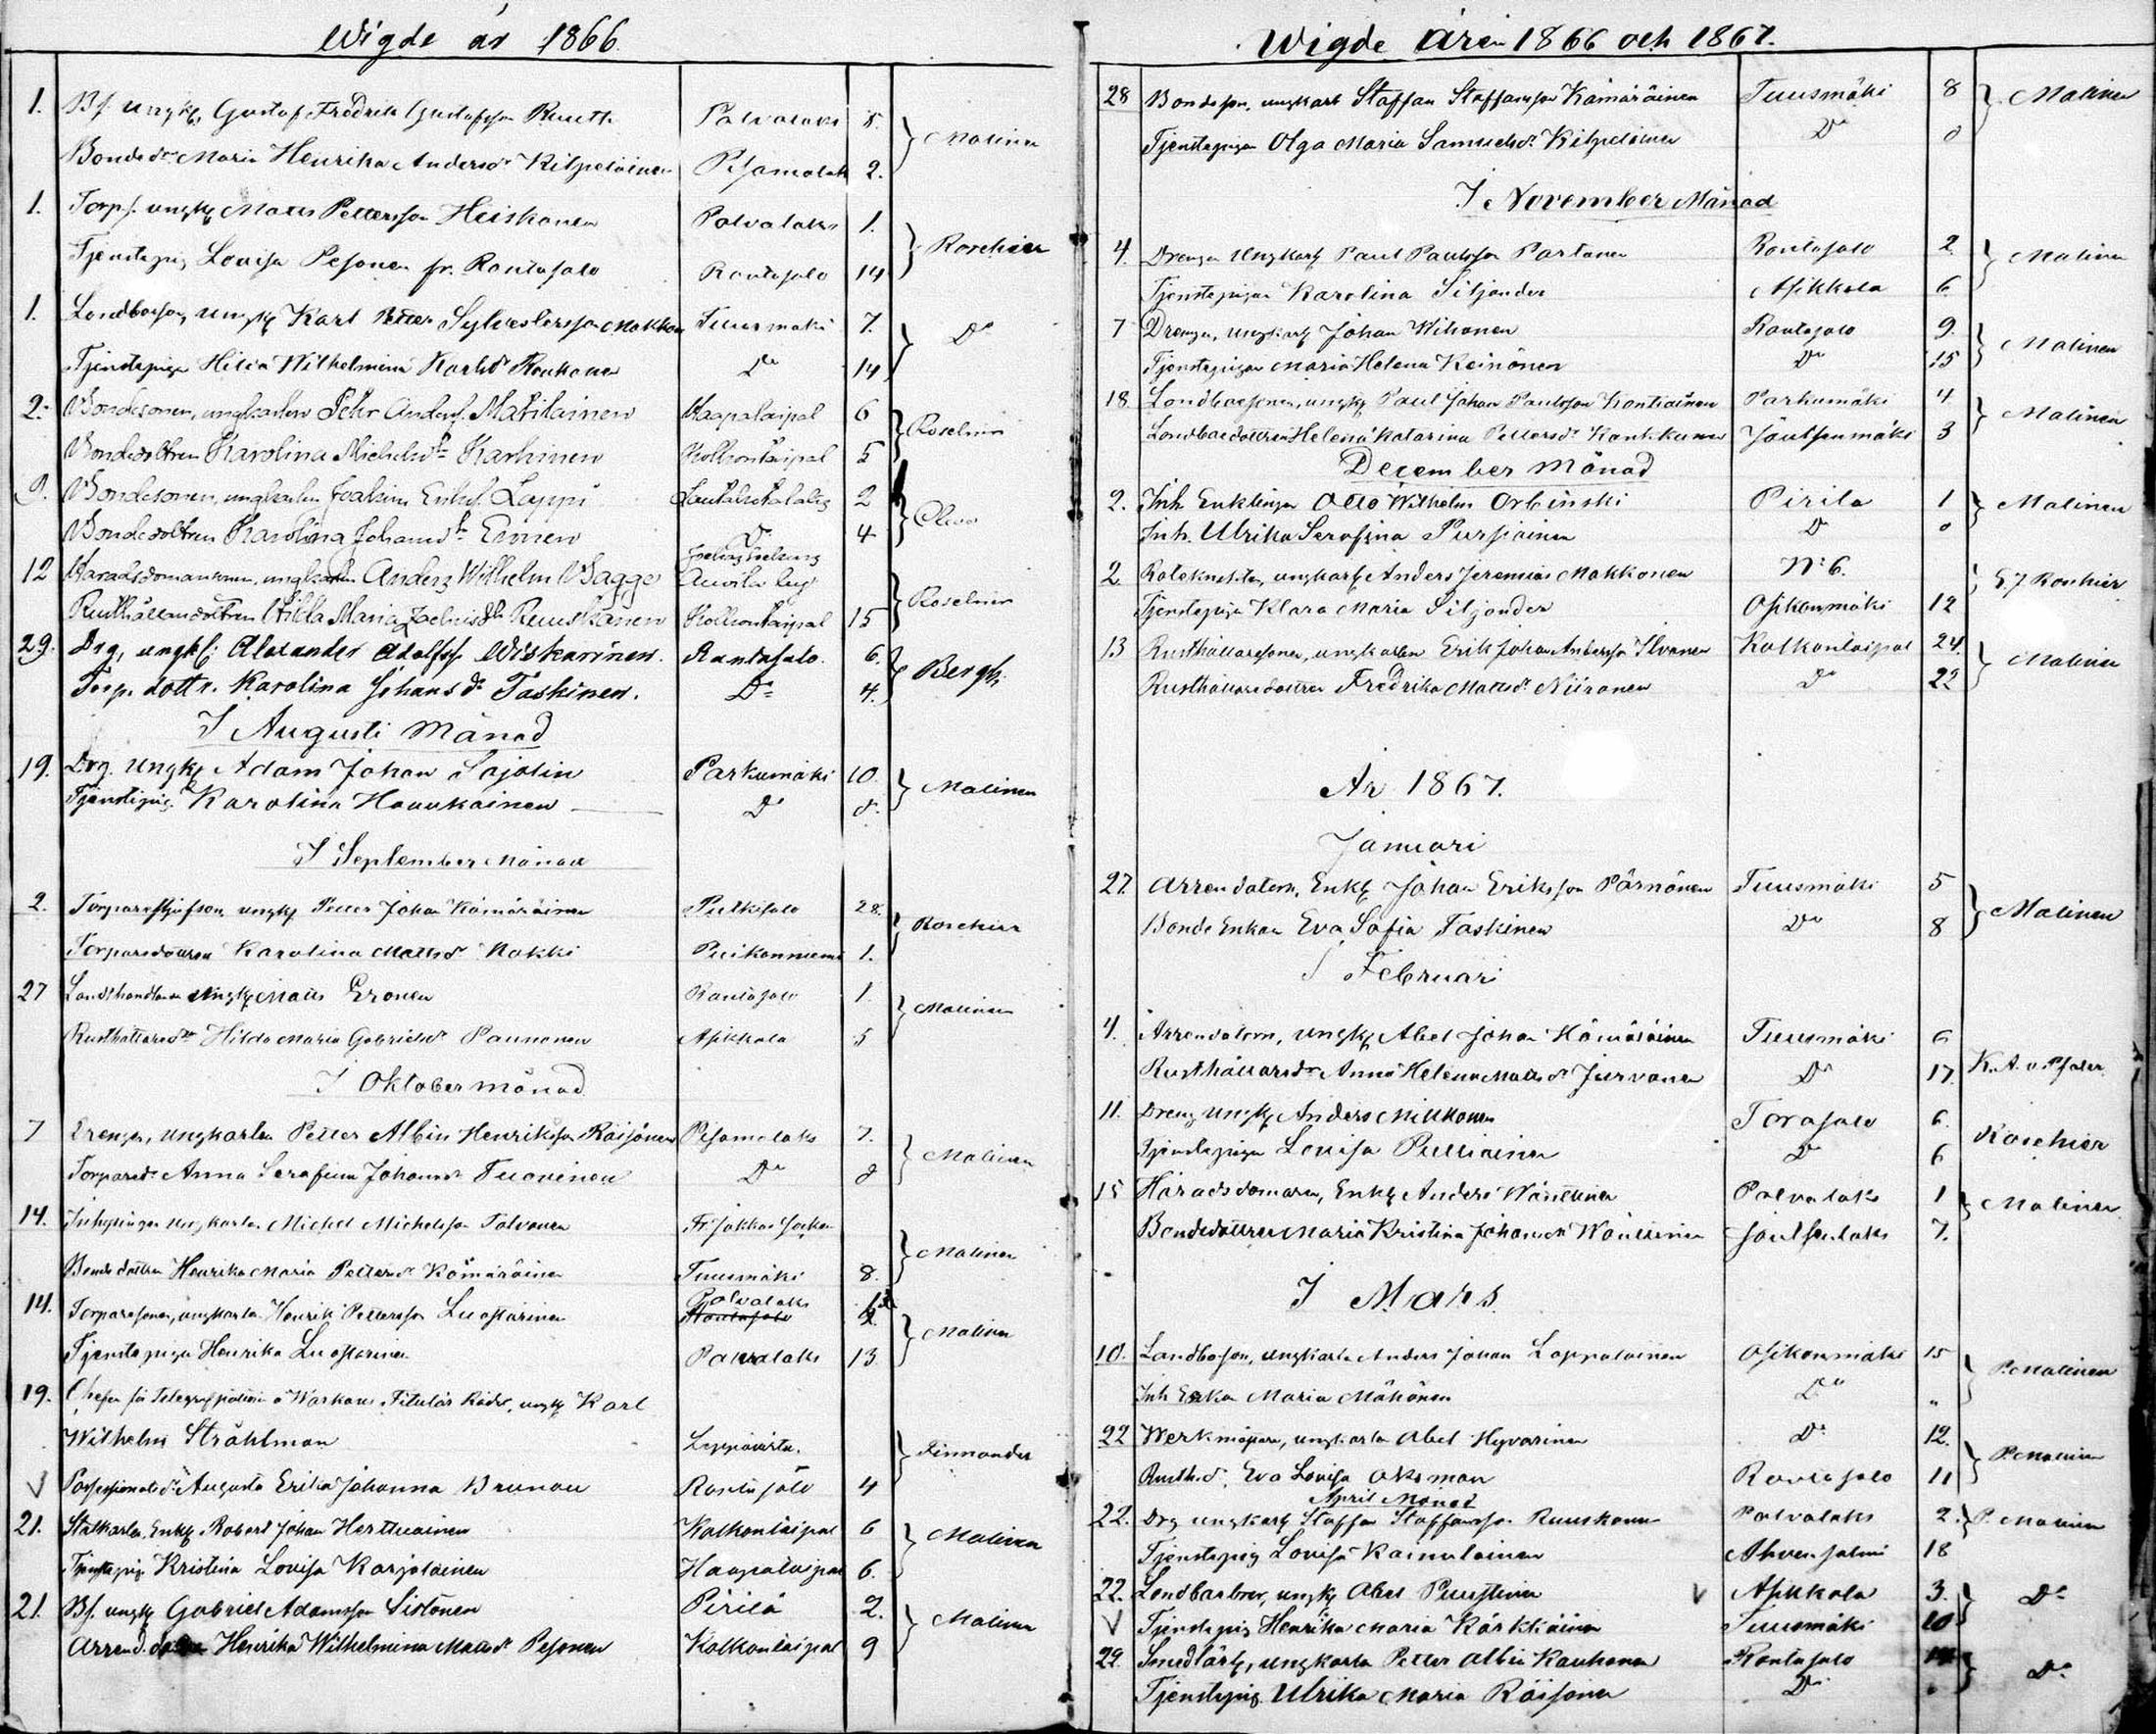 Wigde år 1866.
1. Bf. ungk. Gustaf Fredrik Gustafsson Ruuth Palvalaks 8. Malinen
Bondedr. Maria Henrika Andersdr. Kilpeläinen Pisamalaks 2.
1. Torpf. ungk. Matts Pettersson Heiskanen Palvalaks 1. Roschier
Tjenstepig. Lovisa Pesonen fr. Rantasalo Rantasalo 14
1. Landboson, ungk. Karl Petter Sylvestersson Makkon Tuusmäki 7. Do
Tjenstepiga Hilda Wilhelmina Karlsdr. Roukonen Do 14
2. Bondesonen, ungkarlen Pehr Andersf. Matilainen Haapataipal 6 Roschier
Bondedottren Karolina Michelsdr. Karhinen Kolkontaipal 5
9. Bondesonen, ungkarlen Joakim Eriksf. Lappi Lautakotalaks 2
Bondedottren Karolina Johansdr. Ermen Do 4
12 Häradsdomaresonen, ungkarlen Anders Wilhelm Bagge Auvila by Roschier
Rusthållaredottren Hilda Maria Joelsdr. Ruuskanen Kolkontaipal 15
29. Drg, ungk: Alexander Adolfsf. Wiskarinen. Rantasalo. 6. Bergh.
Torp. dottr. Karolina Johansdr. Taskinen. Do 4.
I Augusti Månad
19. Drg. Ungk. Adam Johan Sajolin Parkumäki 10. Malinen
Tjenstepig. Karolina Haukkainen Do 8.
I September Månad
2. Torparestjufson, ungk. Petter Johan Kämäräinen Pulkisalo 28. Roschier
Torparedottren Karolina Mattsdr. Nokki Puikonniemi 1.
27 Landthandlaren Ungk. Matts Eronen Rantasalo 1. Malinen
Rusthållaredr. Hilda Maria Gabrielsdr. Paunonen Asikkala 5
I Oktober månad
7 Drengen, ungkarlen Petter Albin Henriksson Räisänen Pisamalaks 7. Malinen
Torparedr. Anna Serafina Johansdr. Tuovinen Do 8
14. Inhysingen ungkarlen Michel Michelsson Tolvanen Fr. Jokkas Socken Malinen
Bondedottren Henrika Maria Pettersdr. Kämäräinen Tuusmäki 8.
14. Torparesonen, ungkarlen Henrik Pettersson Luostarinen Palvalaks Malinen
Tjenstepigan Henrika Luostarinen Palvalaks 13
19. Chefen för Telegrafstation å Warkaus, Titulär Rådet, ungk. Karl
Wilhelm Stråhlman Leppävirta. Finnander
V Possessionatsdr. Augusta Erika Johanna Brunou Rantasalo 4
21. Statkarlen, Enkl. Robert Johan Herttuainen Kolkontaipal 6 Malinen
Tjenstepig. Kristina Lovisa Karjalainen Haapataipal 6.
21. Bf. ungk. Gabriel Adamsson Sistonen Pirilä 2. Malinen
Arrend. dottr. Henrika Wilhelmina Mattsdr. Pesonen Kolkontaipal 9
Wigde åren 1866 och 1867.
28 Bondeson, ungkarl Staffan Staffansson Kämäräinen Tuusmäki 8 Malinen
Tjenstepigan Olga Maria Samuelsdr. Kilpeläinen Do 0
I November Månad
4. Drengen Ungkarl Paul Paulsson Partanen Rantasalo 2. Malinen
Tjenstepigan Karolina Siljander Asikkala 6.
7 Drengen, ungkarl Johan Wihonen Rantasalo 9. Malinen
Tjenstepigan Maria Helena Keinänen Do 15
18. Landbosonen, ungk. Paul Johan Paulsson Kontiainen Parkumäki 4 Malinen
Landboedottren Helena Katarina Pettersdr. Kontkunen Joutsenmäki 3
December Månad
2. Inh. Enklingen Otto Wilhelm Orbinski Pirilä 1 Malinen
Inh. Ulrika Serafina Pursiainen Do
2. Rotekneckten, ungkarl Anders Jeremias Makkonen No 6. E.J. Roschier
Tjenstepiga Klara Maria Siljander Osikonmäki 12
13 Rusthållaresonen, ungkarlen Erik Johan Andersson Ilvonen Kolkontaipal 24. Malinen
Rusthållaredottren Fredrika Mattsdr. Niiranen Do 22
År 1867.
Januari
27. Arrendatorn, Enkl. Johan Eriksson Pärnänen Tuusmäki 5 Malinen
Bonde Enkan Eva Sofia Taskinen Do 8
I Februari
4. Arrendatorn, ungk. Abel Johan Hämäläinen Tuusmäki 6 K.A. v. Pfaler
Rusthållaredr. Anna Helena Mattsdr. Jurvanen Do 17.
11. Dreng ungk. Anders Mikkonen Torasalo 6. Roschier
Tjenstepigan Lovisa Pulliainen Do 6
15 Häradsdomaren, Enkl. Anders Wänttinen Palvalaks 1 Malinen
Bondedottren Maria Kristina Johansdr. Wänttinen Joutsenlaks 7.
I Mars
10. Landboson, ungkarlen Anders Johan Lappalainen Osikonmäki 15 P. Malinen
Inh. Enkan Maria Mähönen Do "
22 Werkmästaren, ungkarlen Abel Hyvärinen Do 12. P. Malinen
Rusth.dr. Eva Lovisa Oksman Rantasalo 11
April Månad
22. Drg ungkarl Staffan Staffansson Ruuskanen Palvalaks 2. P. Malinen
Tjenstepig Lovisa Kainulainen Ahvensalmi 18
22. Landboebror, ungk. Abel Puustinen V Asikkala 3. Do
V Tjenstepig. Henrika Maria Kärkkäinen Tuusmäki 10
22 Smedlärl., ungkarlen Petter Albin Kauhanen Rantasalo Do
Tjenstepig. Ulrika Maria Räisänen Do